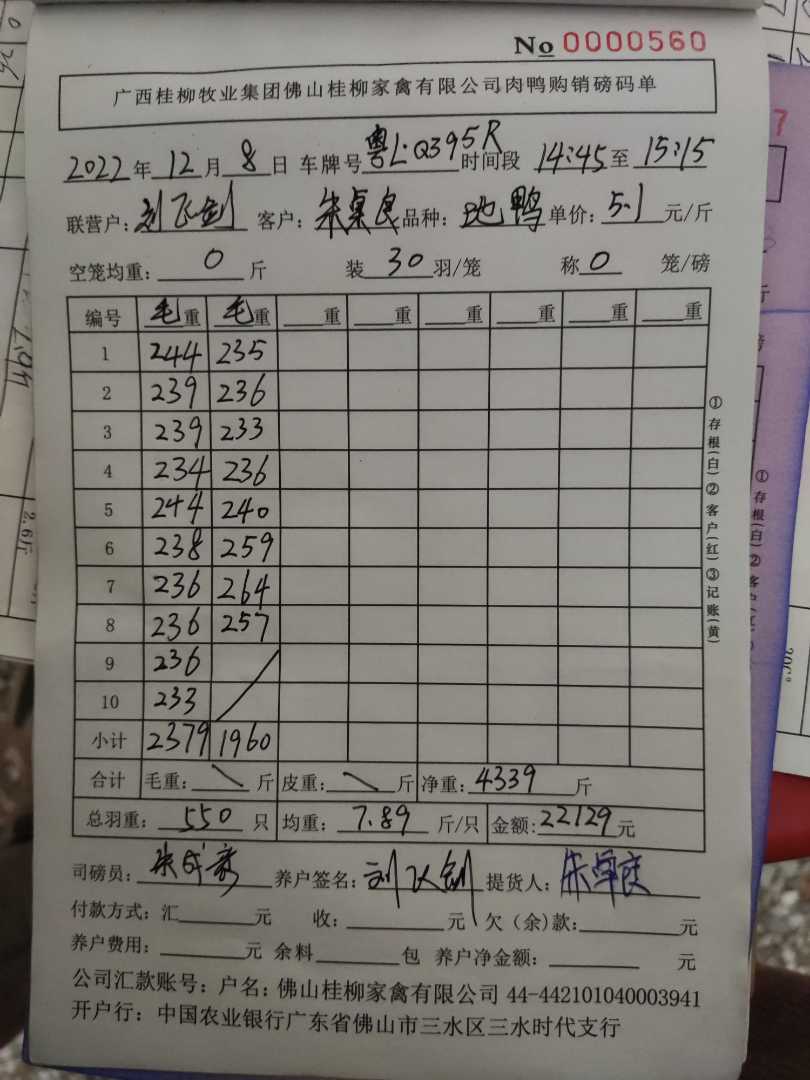 No 0000560
广西桂柳牧业集团佛山桂柳家禽有限公司肉鸭购销磅码单
2022年12月8日 车牌号粤L·Q395R时间段 14:45至15:15
联营户:刘飞剑 客户:朱桌良品种:地鸭单价:5.1元/斤
空笼均重:0斤 装30羽/笼 称0笼/磅
编号 毛重 毛重 重 重 重 重 重 重
1 244 235
2 239 236
3 239 233
4 234 236
5 244 240
6 238 259
7 236 264
8 236 257
9 236
10 233
小计 2379 1960
合计 毛重: 斤 皮重: 斤 净重:4339斤
总羽重:550只 均重:7.89斤/只 金额:22129元
司磅员: 养户签名:刘飞剑 提货人:朱卓良
付款方式:汇 元 收: 元 欠(余)款: 元
养户费用: 元 余料 包 养户净金额: 元
公司汇款账号:户名:佛山桂柳家禽有限公司 44-442101040003941
开户行:中国农业银行广东省佛山市三水区三水时代支行
①存根(白)②客户(红)③记账(黄)
①存根(白)②客户(红)
2.6斤
7